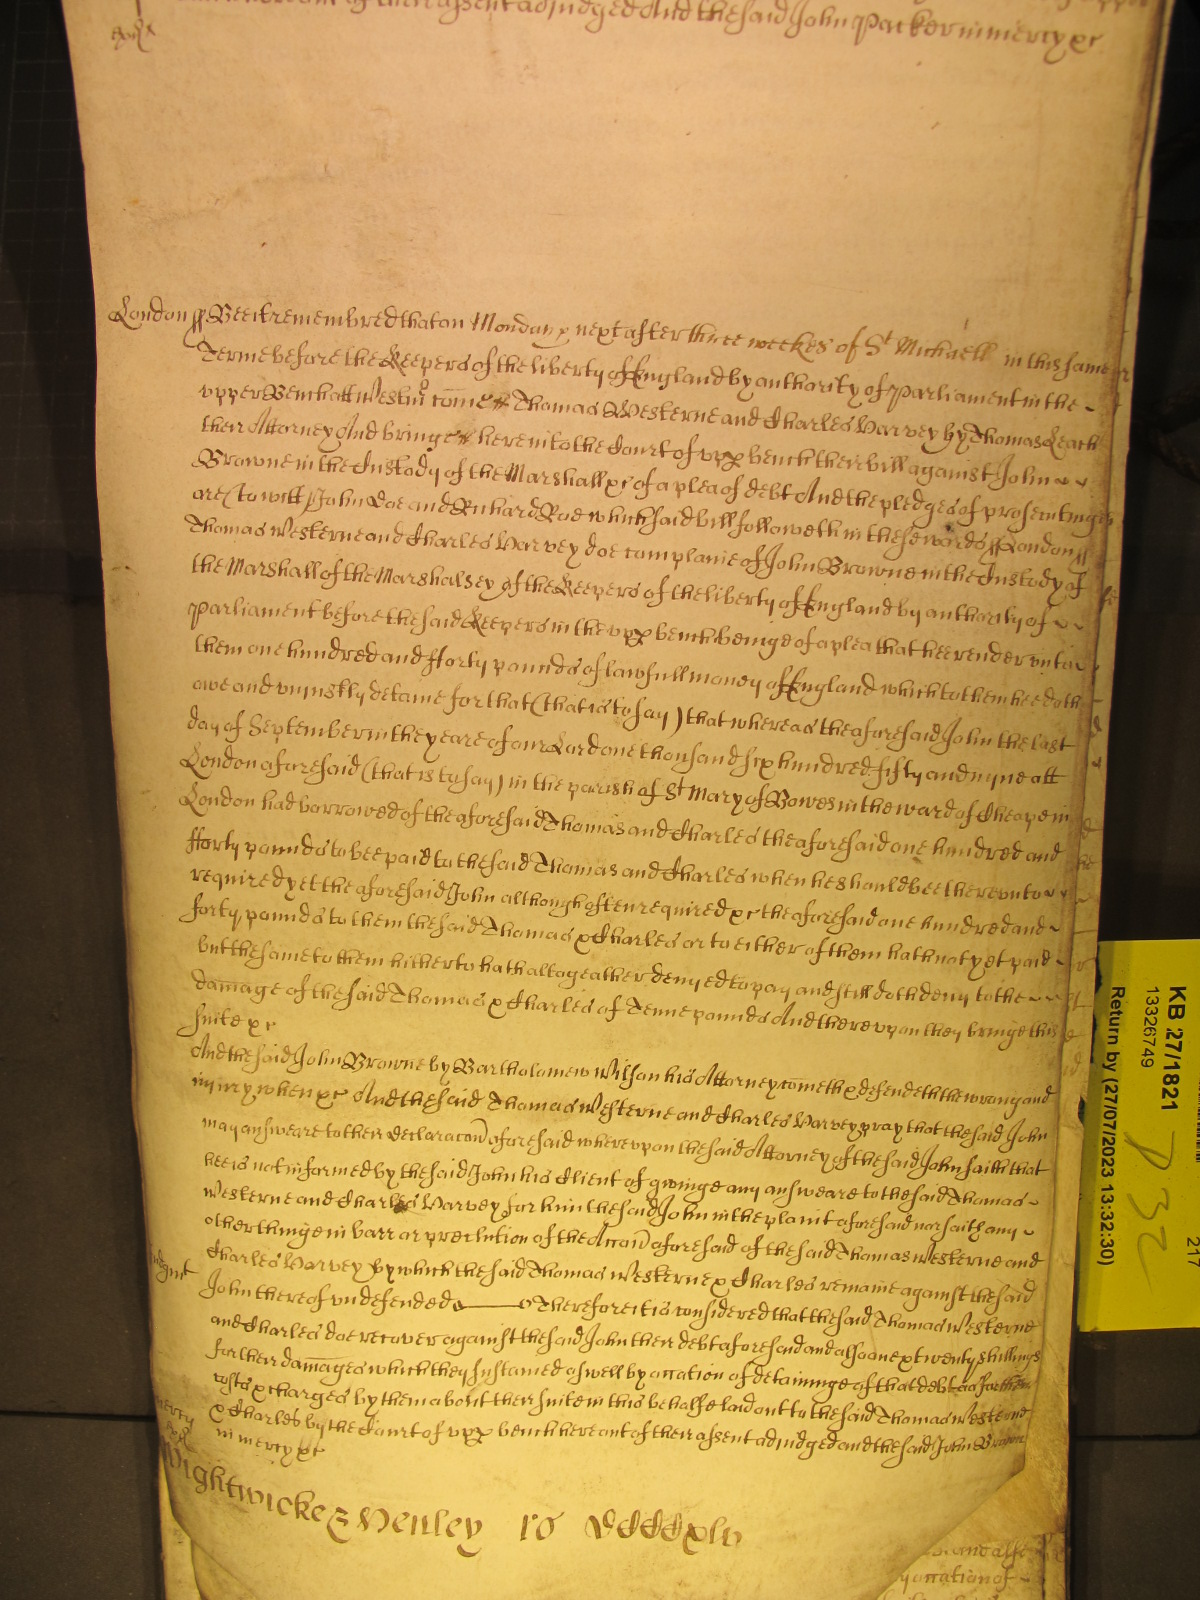 of their assent adjudged And the said John Parker in mercy &c
London ss Bee it remembred that on Monday next after three weekes of St Michaell in this same
Terme before the Keepers of the liberty of England by authority of Parliament in the
upper Bench att Westmr come Thomas Westerne and Charles Harvey by Thomas Leach
their Attorney And bringe here into the Court of upp bench their bill against John
Browne in the Custody of the Marshall &c of a plea of debt And the pledges of prosecutinge
are (to witt) John Doe and Richard Roe which said bill followeth in these words ss London ss
Thomas Westerne and Charles Harvey doe complaine of John Browne in the Custody of
the Marshall of the Marshalsey of the Keepers of the liberty of England by authority of
Parliament before the said Keepers in the upp bench beinge of a plea that hee render unto
them one hundred and fforty pounds of lawfull money of England which to them hee doth
owe and uniustly detaine for that (that is to say) that whereas the aforesaid John the last
day of September in the yeare of our Lord one thousand six hundred fifty and nyne att
London aforesaid (that is to say) in the parish of St Mary of Bowes in the ward of Cheape in
London had borrowed of the aforesaid Thomas and Charles the aforesaid one hundred and
fforty pounds to bee paid to the said Thomas and Charles when he should bee thereunto
required yet the aforesaid John although often required &c the aforesaid one hundred and
forty pounds to them the said Thomas & Charles or to either of them hath not yet paid
but the same to them hitherto hath altogeather denyed to pay and still doth deny to the
damage of the said Thomas & Charles of Tenne pounds And thereupon they bringe this
suite &c
And the said John Browne by Bartholomew Wilson his Attorney cometh & defendeth the wrong and
iniury when &c And the said Thomas Westerne and Charles Harvey pray that the said John
may answeare to their declaracon aforesaid whereupon the said Attorney of the said John saith that
hee is not informed by the said John his Client of givinge any answeare to the said Thomas
Westerne and Charles Harvey for him the said John in the plaint aforesaid nor saith any
other thinge in barr or preclution of the Accon aforesaid of the said Thomas Westerne and
Charles Harvey by which the said Thomas Westerne & Charles remaine against the said
John thereof undefended Therefore it is considered that the said Thomas Westerne
and Charles doe recover against the said John their debt aforesaid and alsoe twenty shillings
for their damages which they sustained aswell by occation of detaininge of that debt as for their
costs & charges by them about their suite in this behalfe laid out to the said Thomas Westerne
& Charles by the Court of upp bench here out of their assent adjudged and the said John Browne
in mercy &c
Wightwicke & Henley
KB 27/1821
13326749
Return by (27/07/2023 13:32:30)
217
P 32